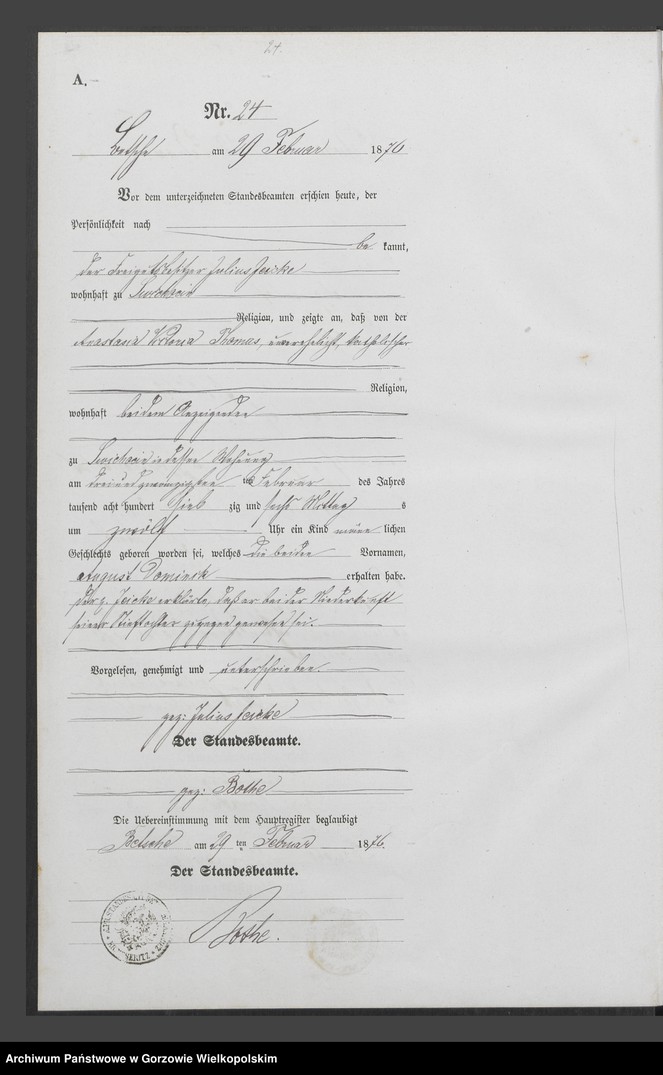 24.
A.
Nr. 24
Betsche am 29 Februar 1876
Vor dem unterzeichneten Standesbeamten erschien heute, der
Persönlichkeit nach
be kannt,
der Freigutsbesitzer Julius Jeicke
wohnhaft zu
Religion, und zeigte an, daß von der
Thomas, unverehelicht, katholischer
Religion,
wohnhaft bei dem Anzeigenden
zu in dessen Wohnung
am dreiundzwanzigsten ten Februar des Jahres
tausend acht hundert sieb zig und sechs Mittag s
um zwölf Uhr ein Kind männ lichen
Geschlechts geboren worden sei, welches die beiden Vornamen,
August Dominick erhalten habe.
Der p. Jeicke erklärte, daß er bei der Niederkunft
seiner Stieftochter zugegen gewesen sei.
Vorgelesen, genehmigt und unterschrieben.
gez: Julius Jeicke
Der Standesbeamte.
gez: Bothe
Die Uebereinstimmung mit dem Hauptregister beglaubigt
Betsche am 29 ten Februar 1876.
Der Standesbeamte.
Bothe.
Archiwum Państwowe w Gorzowie Wielkopolskim